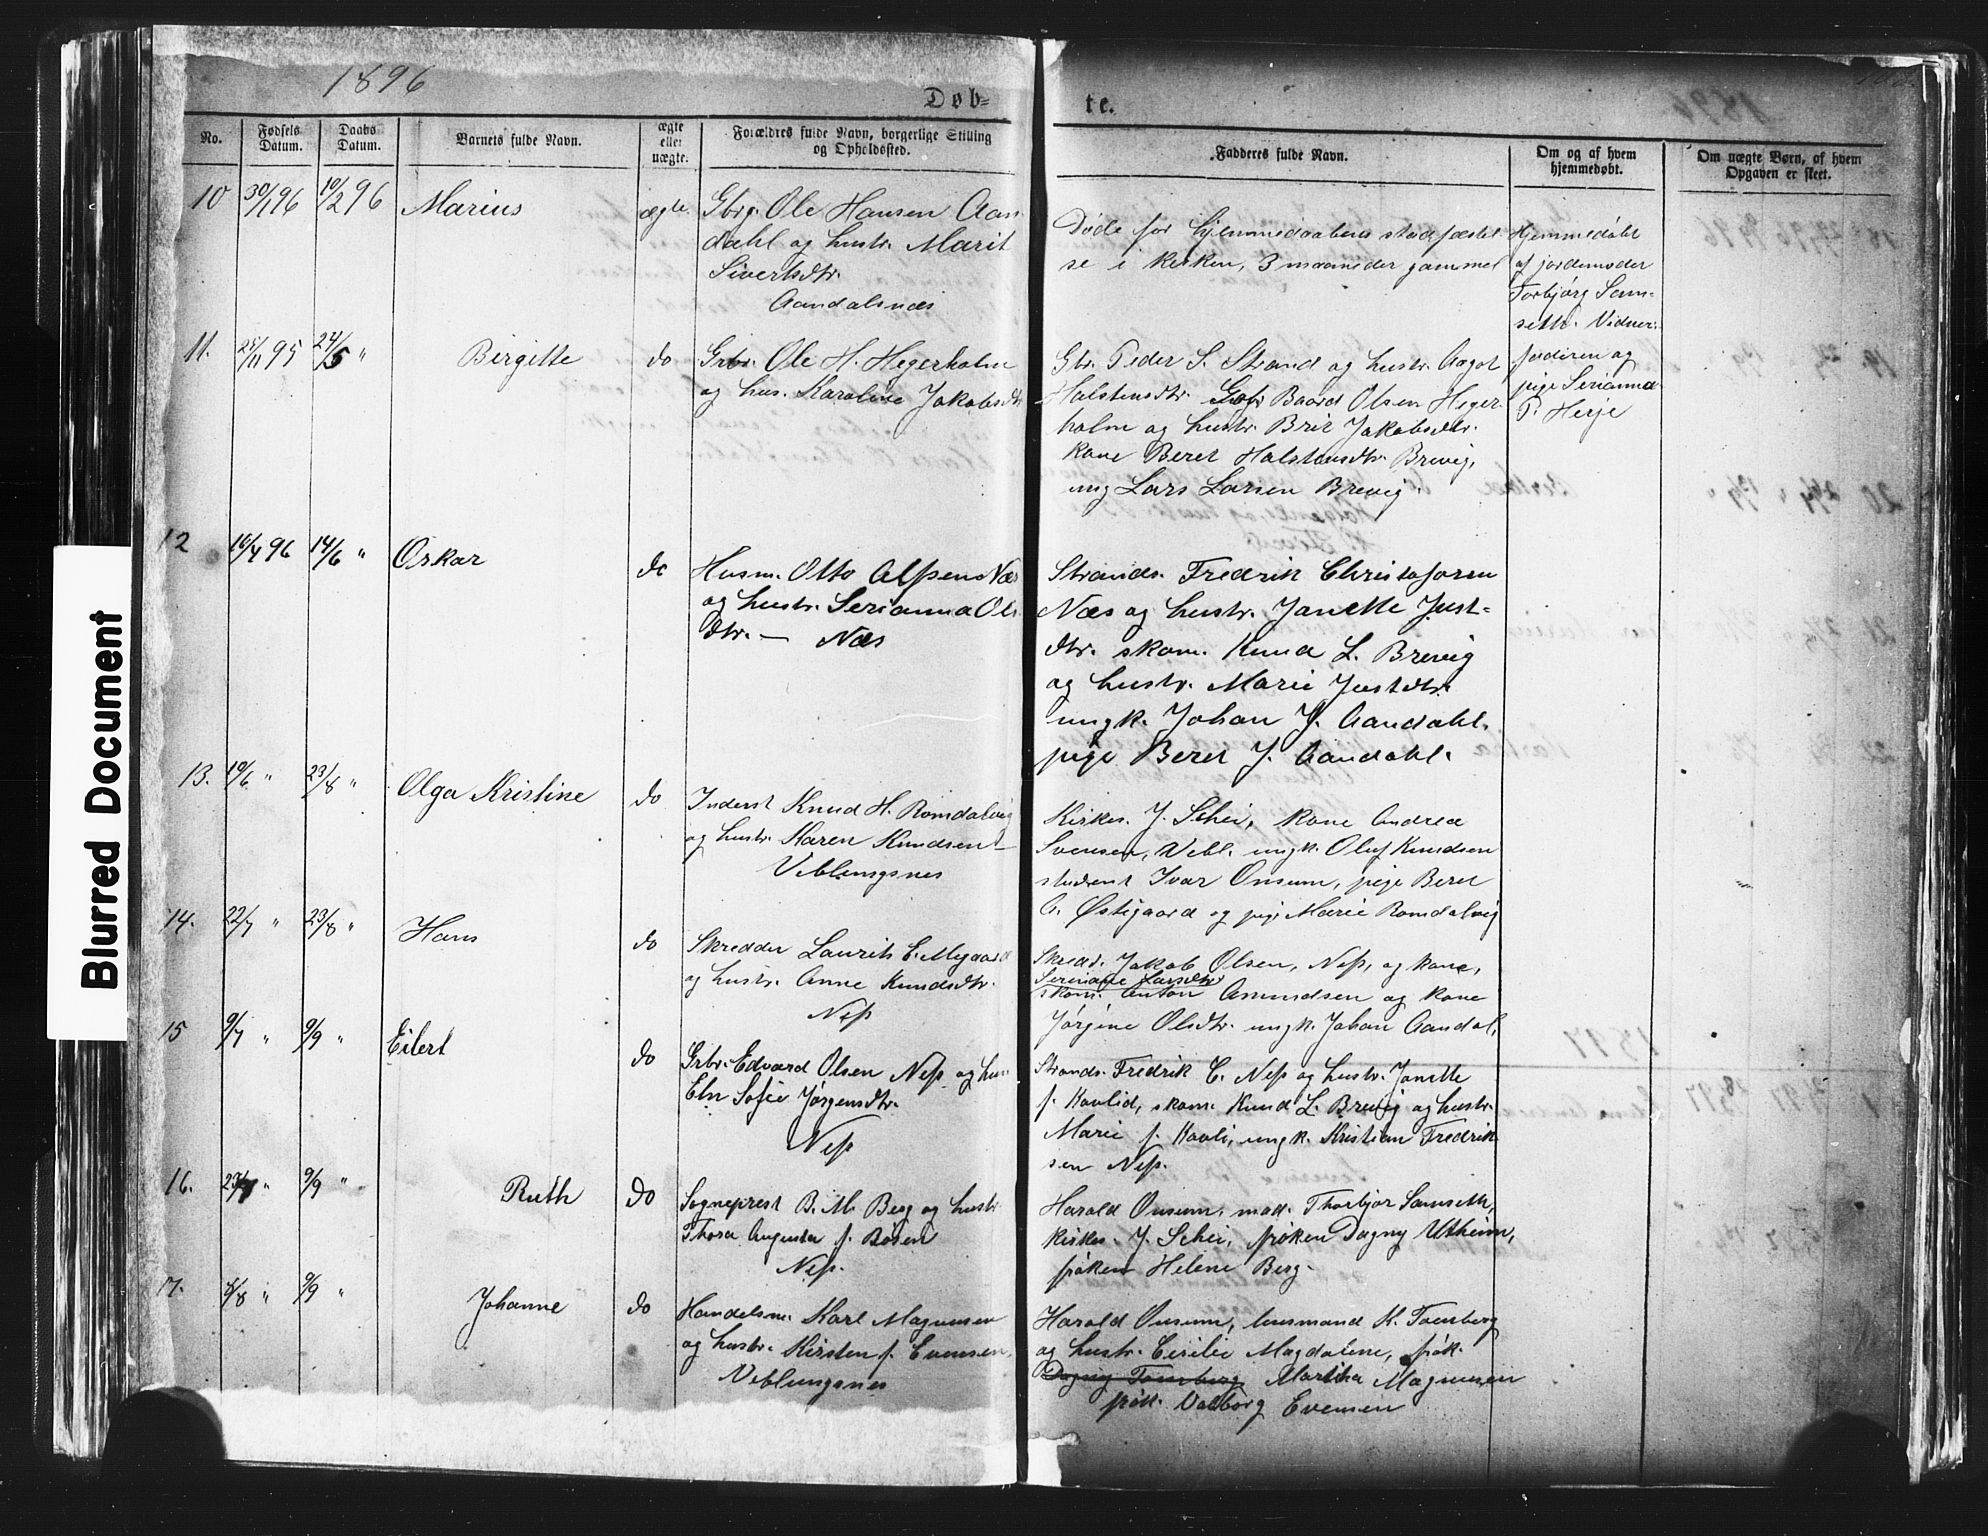 1896
Døb-
te.
No.
Fødsels
Datum.
Daabs
Datum.
Barnets fulde Navn.
ægte
eller
uægte.
Forældres fulde Navn, borgerlige Stilling
og Opholdssted.
Fadderes fulde Navn.
Om og af hvem
hjemmedøbt.
Om uægte Børn, af hvem
Opgaven er skeet.
10 30/1 96 10/2 96 Marius ægte. Gbrg. Ole Hansen Aan-
dahl og hustr. Marit
Sivertsdtr.
Aandalsnæs
Døde før hjemmedaabens stadfæstel-
se i kirken, 3 maaneder gammel
Hjemmedøbt
af jordemoder
Torbjørg Sam-
seth. Vidner:
faderen og
pige Serianna
P. Herje
11. 25/11 95 24/5 " Birgitte do Grbr. Ole H. Hegerholm
og hus. Karoline Jakobsdtr
Gbr. Peder S. Strand og hustr. Aagot
Halstensdtr. Gbr Baard Olsen Heger-
holm og hustr. Brit Jakobsdtr.
kone Beret Halstensdtr. Brevig,
ung Lars Larsen Brevig.
12 16/4 96 14/6 " Oskar do Husm. Otto Alfsen Næs
og hustr. Serianna Ols
dtr. — Næs
Strands. Fredrik Christofersen
Næs og hustr. Janette Just-
dtr. skom. Knud L. Brevig
og hustr. Marie Justdtr.
ungk. Johan J. Aandahl.
pige Beret J. Aandahl.
13. 19/6 " 23/8 " Olga Kristine do Inderst Knud H. Romdalvig
og hustr. Karen Knudsen —
Veblungsnes
Kirkes. J. Schei, kone Andrea
Svensen, Vebl. ungk. Oluf Knudsen
student Ivar Onsum, pige Beret
A. Østigaard og pige Marie Romdalvig
14. 22/7 " 23/8 " Hans do Skredder Laurits E. Mygaard
og hustr. Anne Knudsdtr.
Ness
Skredd. Jakob Olsen, Ness, og kone,
Seriane Larsdtr
skom. Anton Amundsen og kone
Jørgine Olsdtr. ungk. Johan Aandal.
15 9/7 " 9/9 " Eilert do Grbr. Edvard Olsen Ness og hus
Eln Sofie Jørgensdtr.
Ness
Strands. Fredrik C. Ness og hustr. Janette
f. Havlid, skom. Knud L. Brevig og hustr.
Marie f. Havli, ungk. Kristian Fredrik
sen Ness.
16. 23/7 " 9/9 " Ruth do Sogneprest B. M. Berg og hustr
Thora Augusta f. Bøsen
Ness.
Harald Onsum, mad. Thorbjør Samseth,
kirkes. J. Schei, frøken Dagny Utheim,
frøken Helene Berg.
17. 8/8 " 9/9 " Johanne do Handelsm. Karl Magnusen
og hustr. Kirsten f. Evensen.
Veblungsnes
Harald Onsum, husmand K. Tomberg
og hustr. Cecilie Magdalene, frøk.
Dagny Tomberg Martha Magnusen
frøk. Valborg Evensen
Blurred Document